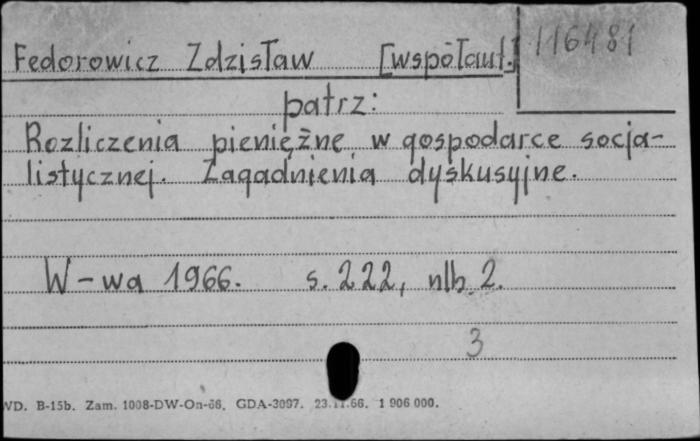 Fedorowicz Zdzisław [współaut.] 116481
patrz:
Rozliczenia pieniężne w gospodarce socja-
listycznej. Zagadnienia dyskusyjne.
W-wa 1966. s. 222, nlb. 2.
3
WD. B-15b. Zam. 1008-DW-On-66. GDA-3097. 23.11.66. 1 906 000.